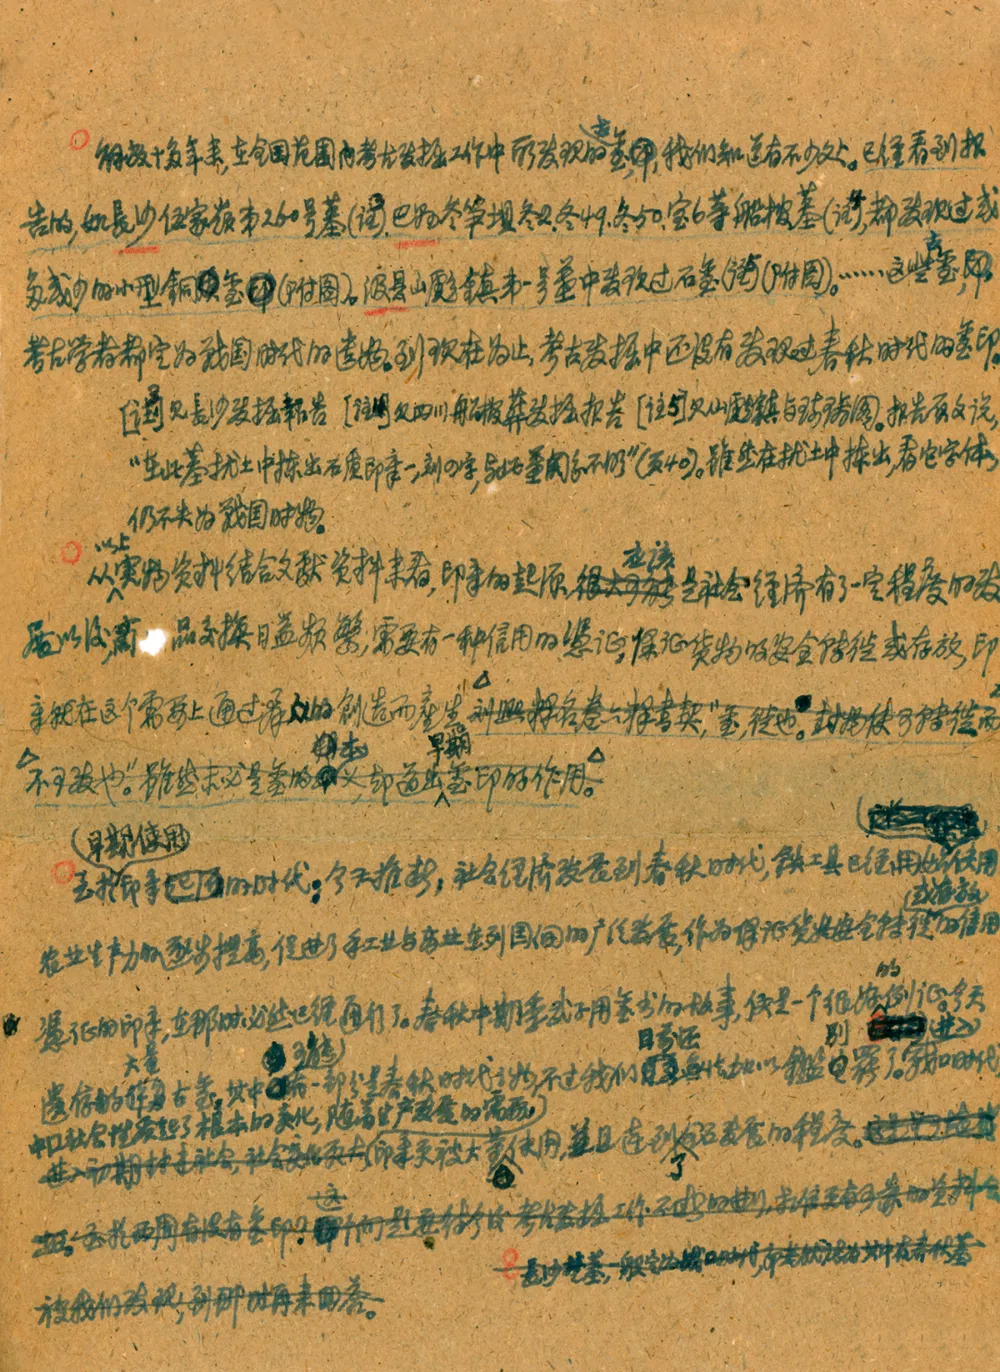 解放十多年来,在全国范围内考古发掘工作中所发现的古玺印,我们知道有不少以上。已经看到报
告的,如长沙伍家岭第260号墓(註),巴县冬笋坝冬2、冬49、冬50、宝6等船棺墓(註),都发现过或
多或少的小型铜质玺印(附图)。汲县山彪镇第一号墓中发现过石玺(註)(附图)。……这些古玺印,
考古学者都定为战国时代的遗物。到现在为止,考古发掘中还没有发现过春秋时代的玺印。
[註]见长沙发掘報告 [註]见四川船棺葬发掘报告 [註]见山彪镇与琉璃阁。报告原文说,
“在此墓扰土中拣出石质印章一,刻四字,与此墓关系不明”(页40)。虽然在扰土中拣出,看它字体,
仍不失为战国时物。
以上
从实物资料结合文献资料来看,印章的起源,应该是社会经济有了一定程度的发
展以后,商品交换日益频繁,需要有一种信用的凭证,保证货物的安全转徙或存放,印
章就在这个需要上通过群众的创造而产生 刘熙释名卷六释书契,“玺,徙也。封物使可转徙而
不可发也”。虽然未必是玺的本义,却道出早期玺印的作用。
(早期使用)
至於印章的时代:今天推断,社会经济发展到春秋时代,鉄工具已经开始使用
或存放
农业生产力的逐步提高,促进了手工业与商业在列国间的广泛发展,作为保证货物安全转徙的信用
的
凭证的印章,在那时必然已经通行了。春秋中期季武子用玺书的故事,便是一个很好例证。今天
大量 可能 目前还 别 进入
遗存的古玺。其中有一部分是春秋时代之物,不过我们无法加以鑑罢了。战国时代
中国社会性质起了根本的变化,随着生产发展的需要,
进入初期封建社会,社会变化更大,印章更被大量使用,並且达到了发展的程度。
至於西周有没有玺印?这个问题要待今后考古发掘工作不断的进行,或许更有可靠的资料
长沙楚墓,一般定为战国时代,
被我们发现,到那时再来回答。